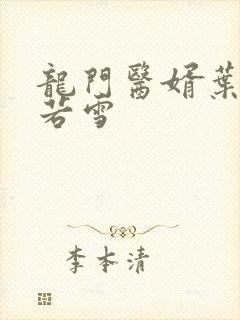 龍門醫婿葉
若雪
李本清